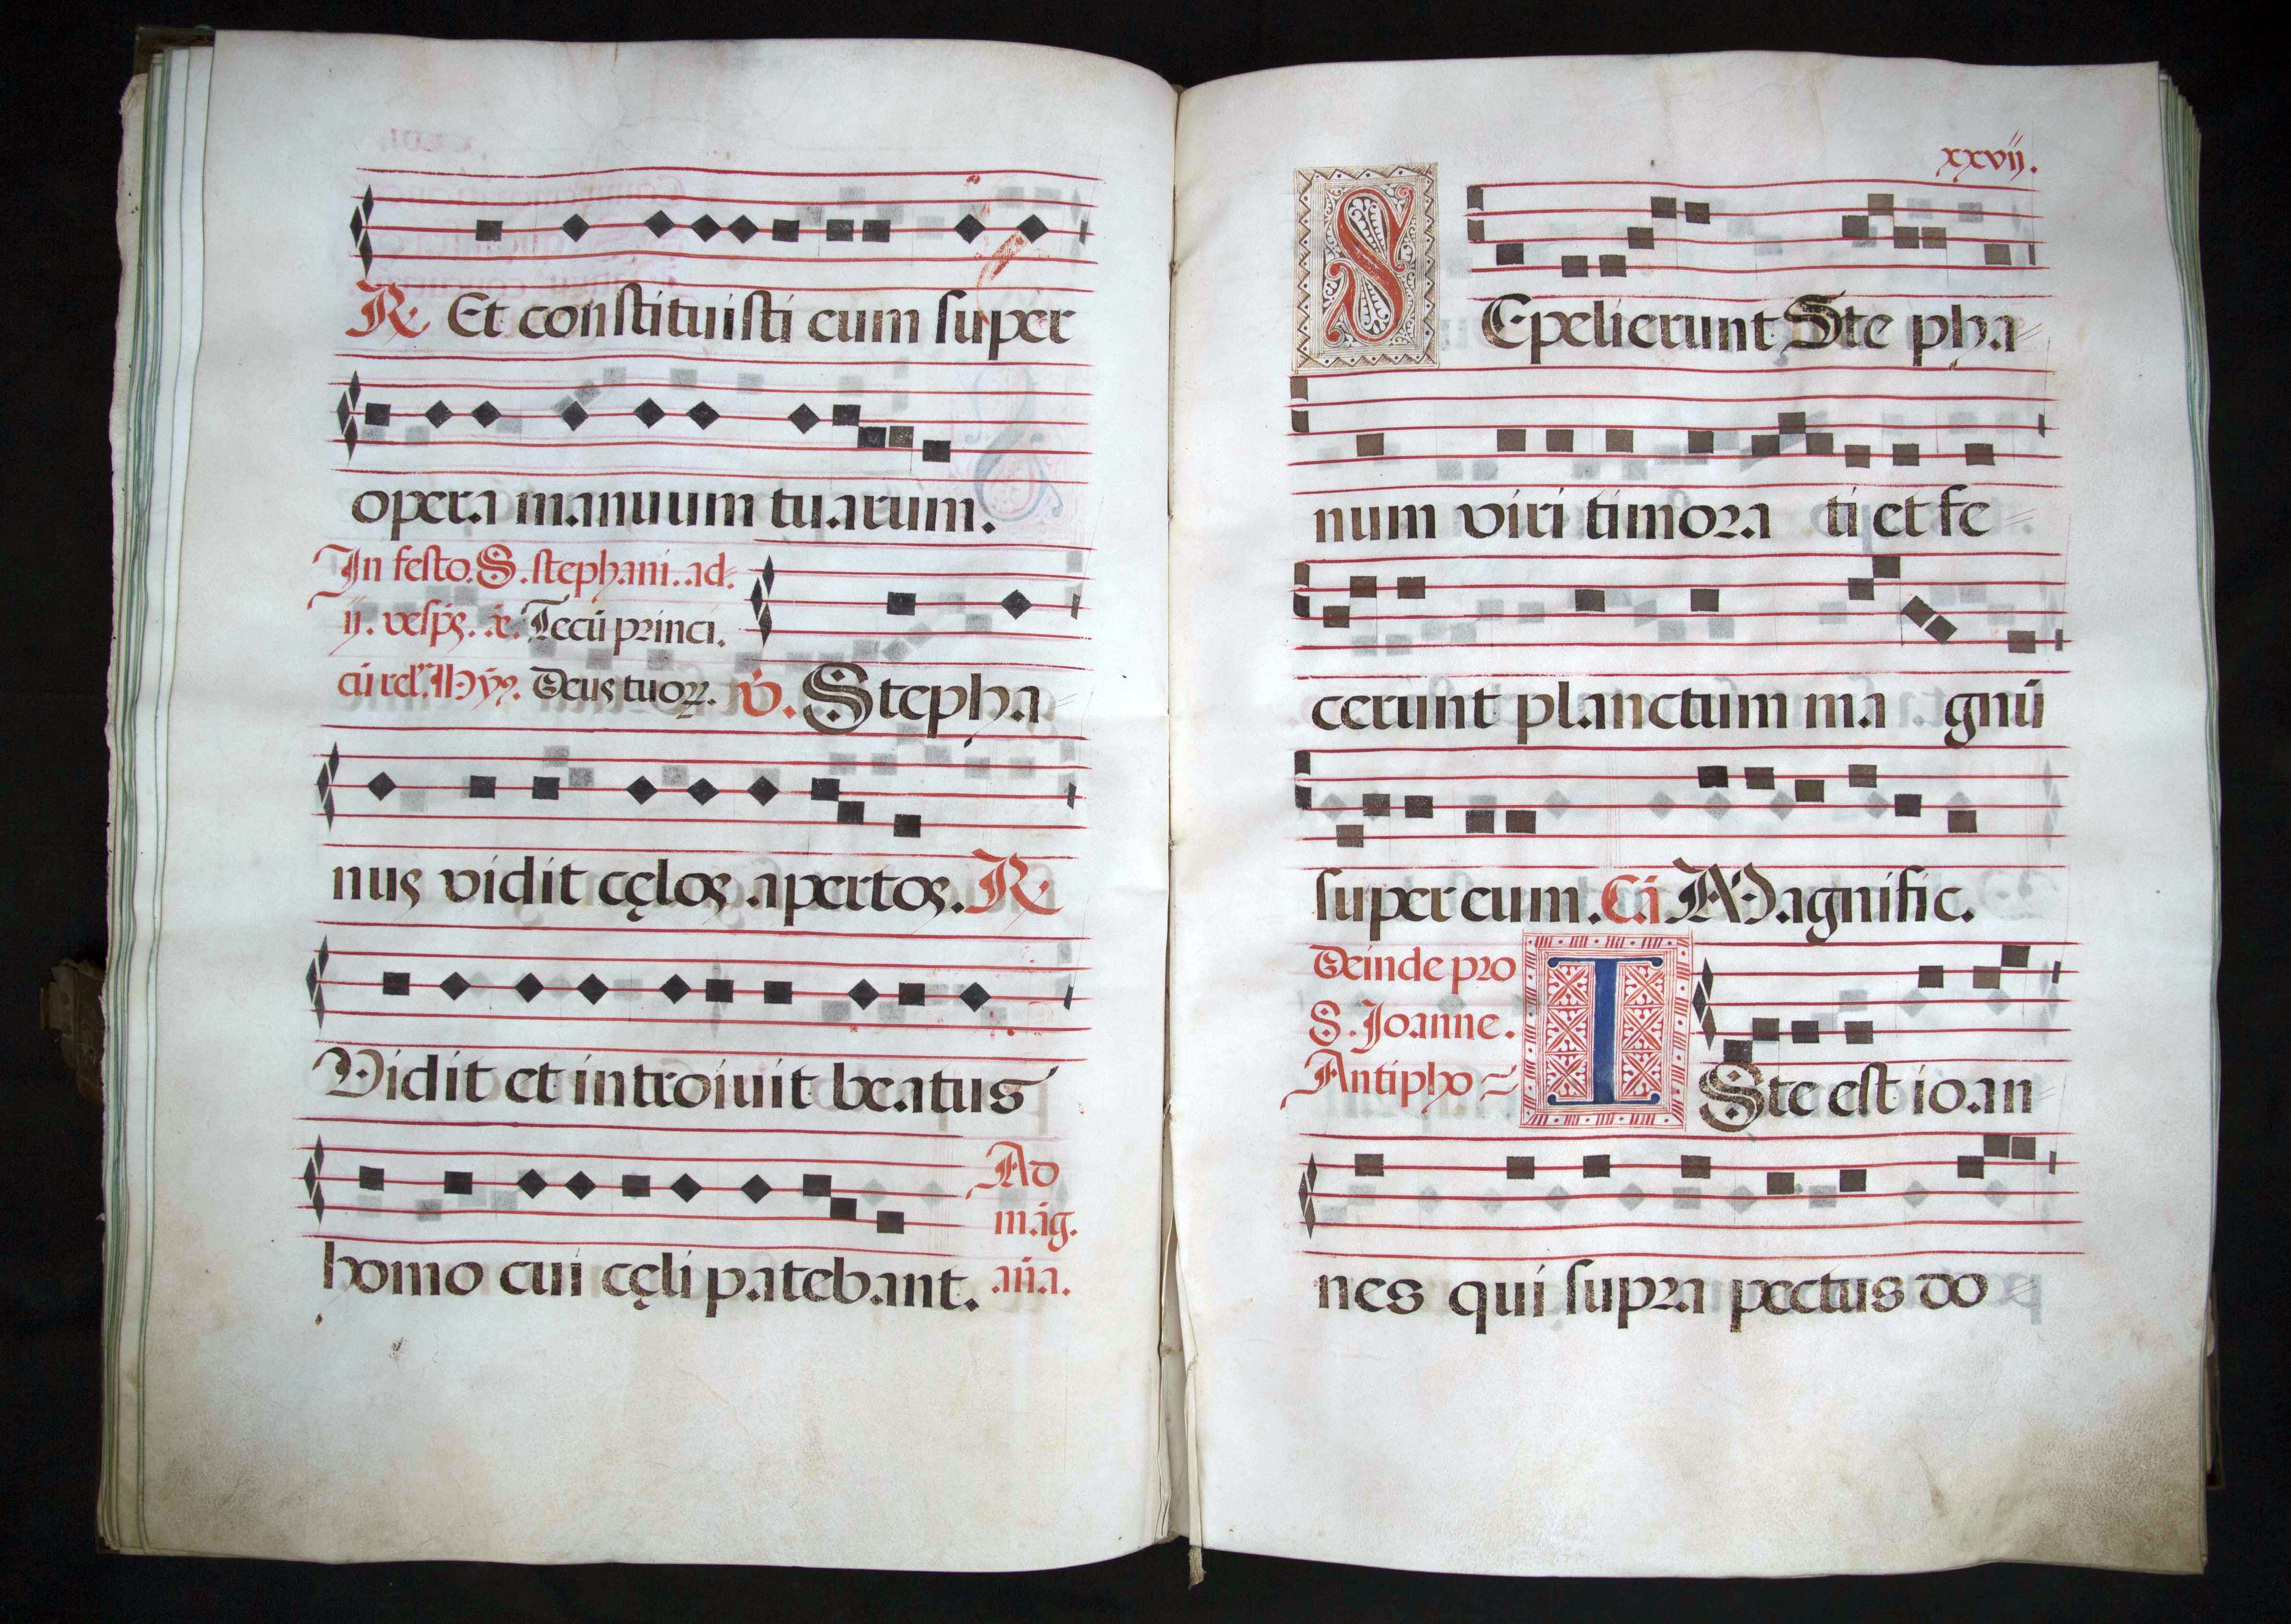 R. Et constituisti cum super
opera manuum tuarum.
In festo. S. stephani. ad
ij. vesp̃s. ãe. Tecũ princi.
cũ rel. Hyṽ. Deus tuoꝝ. ℣. Stepha
nus vidit cęlos apertos. R.
Vidit et introiuit beatus
Ad
mãg.
homo cui cęli patebant. aña.
xxvij.
SEpelierunt Ste pha
num viri timora ti et fe
cerunt planctum ma gnũ
super eum. Cã Magnific.
Deinde pro
S. Joanne.
Antipho
ISte est ioan
nes qui supra pectus do